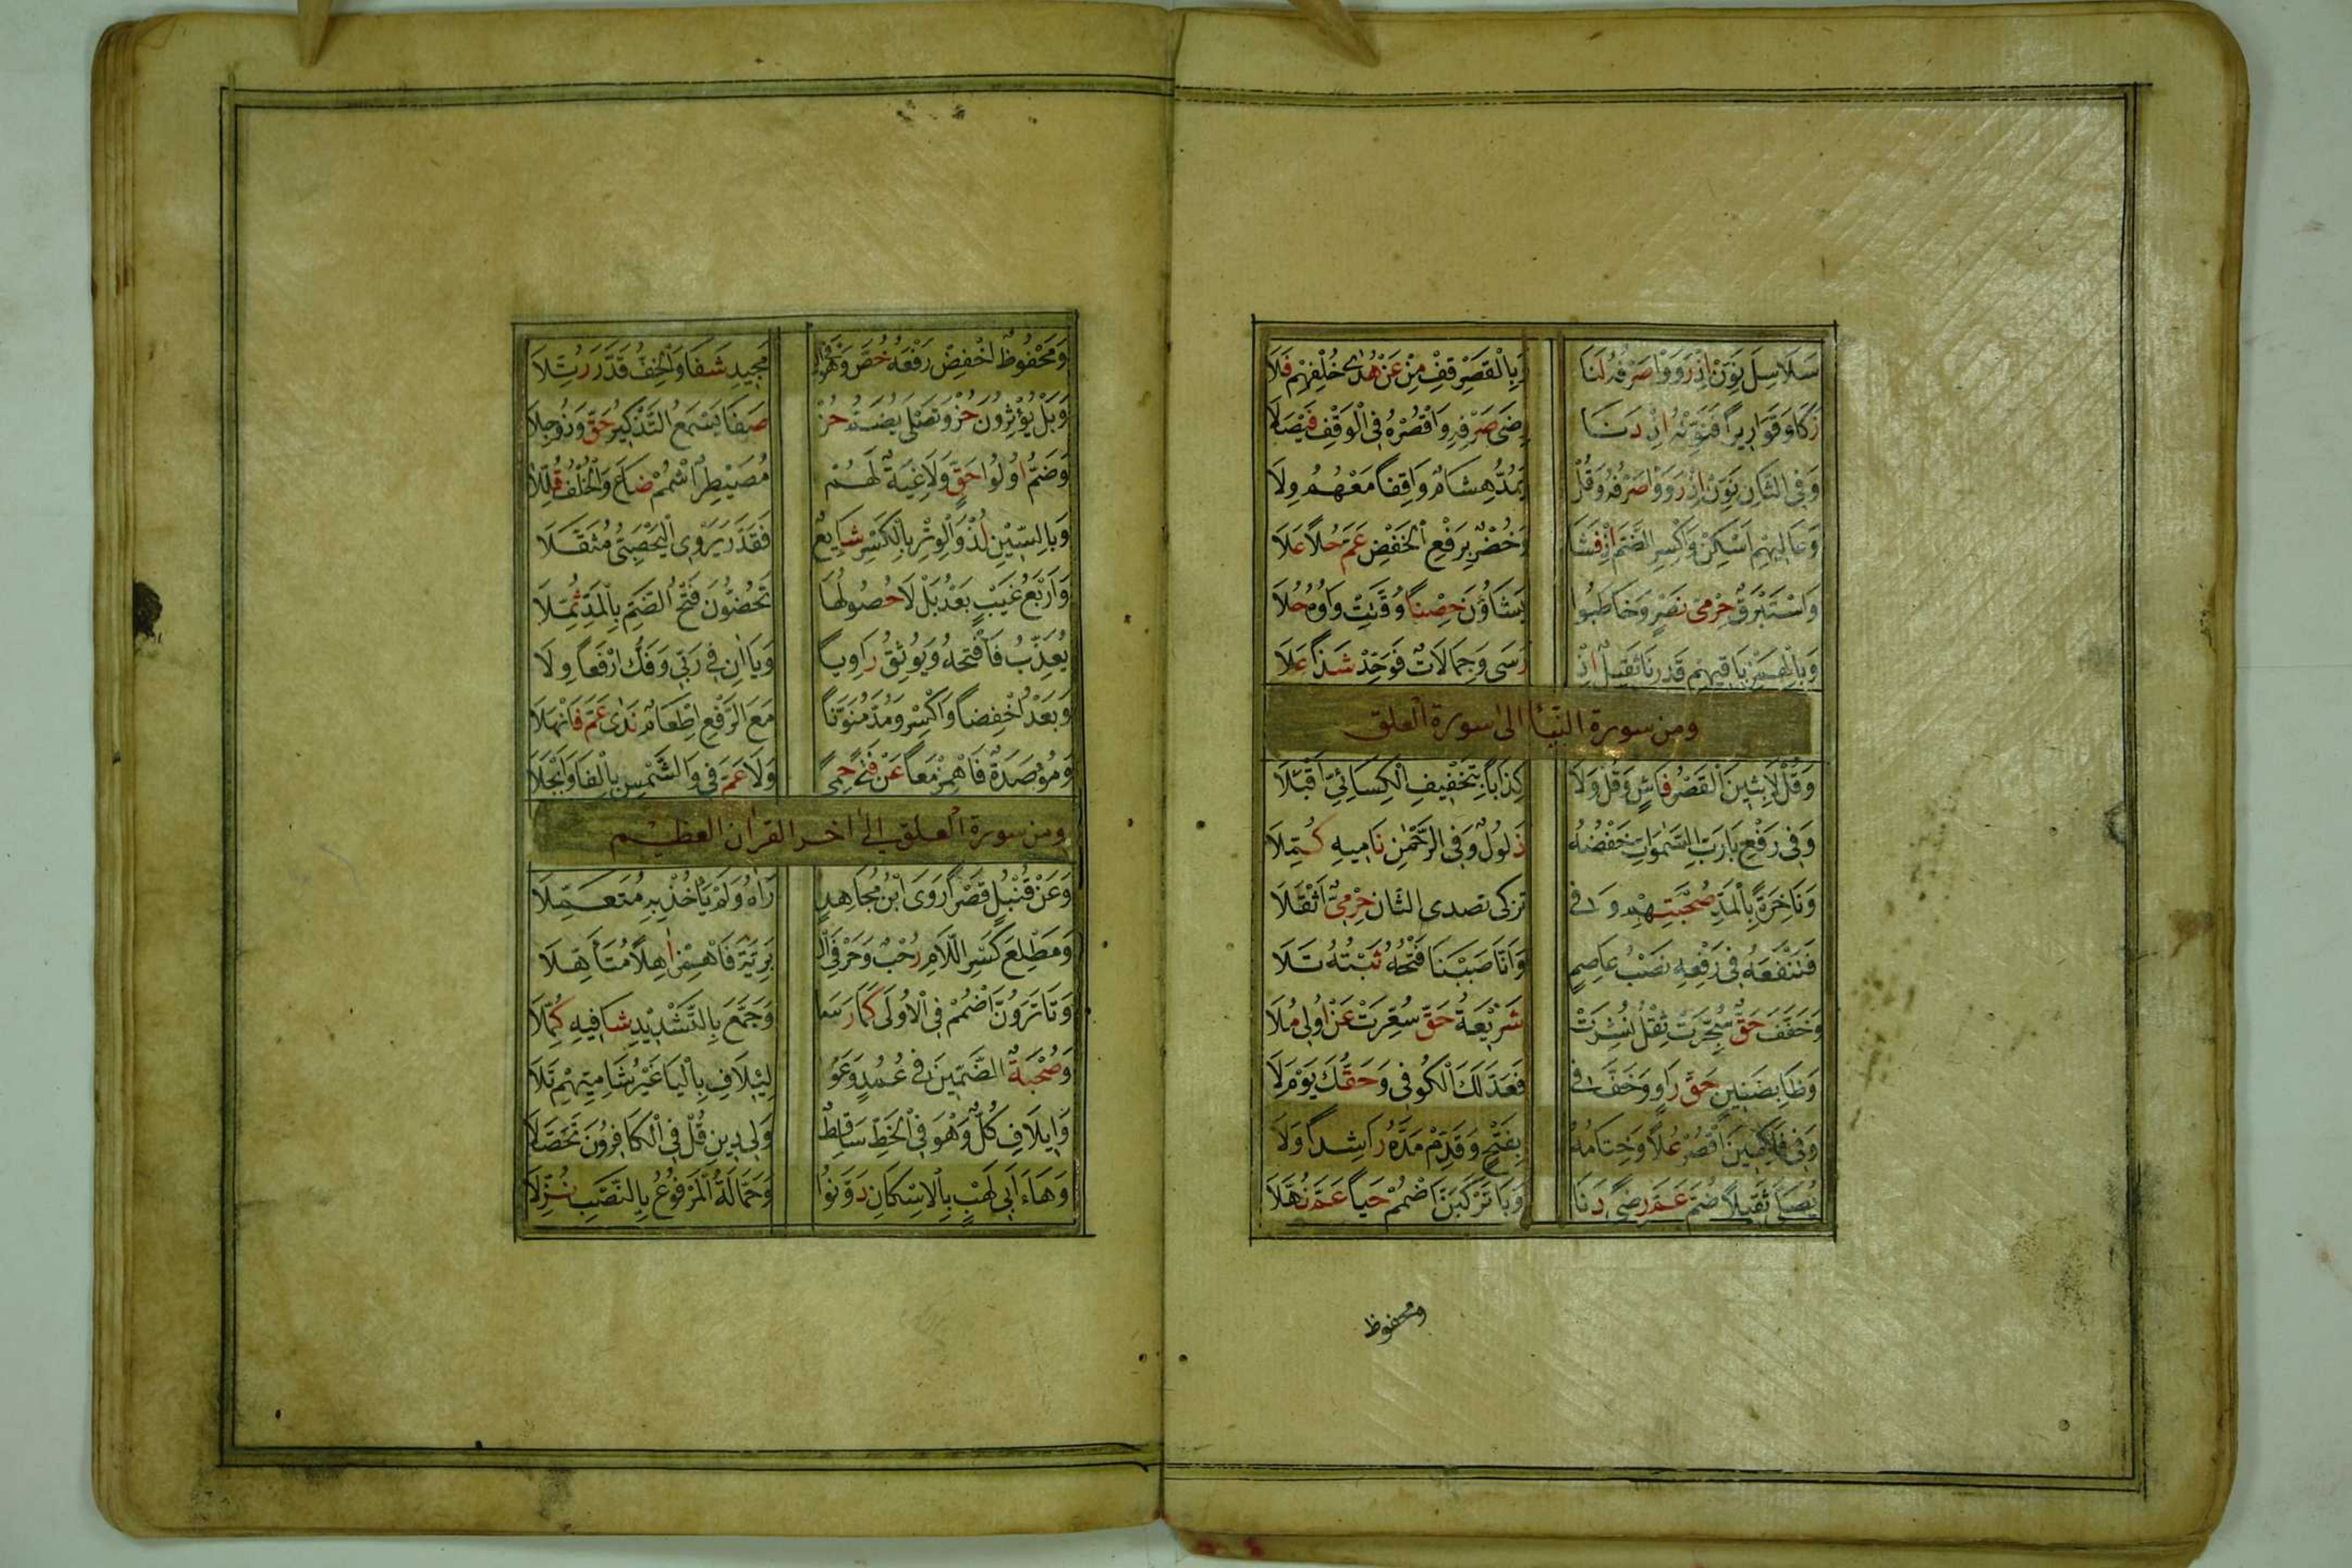 سَلَاسِلَ نَوِّنْ اِذْ رَوَوْا صَرْفَهُ لَنَا وَبِالْقَصْرِ قِفْ مِنْ عَنْ هُدًى خُلْفُهُمْ فَلَا
زَكَا وَقَوَارِيرًا فَنَوِّنْهُ اِذْ دَنَا رِضَى صَرْفِهِ وَاقْصُرْهُ فِى الْوَقْفِ فَيْصَلَا
وَفِى الثَّانِ نَوِّنْ اِذْ رَوَوْا صَرْفَهُ وَقُلْ يَمُدُّ هِشَامٌ وَاقِفًا مَعْهُمُ وِلَا
وَعَالِيهِمْ اَسْكِنْ وَاكْسِرِ الضَّمَّ اِذْ فَشَا وَخُضْرٌ بِرَفْعِ الْخَفْضِ عَمَّ حُلًا عَلَا
وَاسْتَبْرَقٌ حِرْمِىُّ نَصْرٍ وَخَاطَبُوا يَشَاؤُنَ حِصْنًا وُقِّتَتْ وَاوُهُ حُلَا
وَبِالْهَمْزِ بَاقِيهِمْ قَدَرْنَا ثَقِيلٌ اِذْ رَسَى وَجِمَالَاتٌ فَوَحِّدْ شَذًا عَلَا
ومن سورة النبأ الى سورة العلق
وَقُلْ لَابِثِينَ الْقَصْرُ فَاشٍ وَقُلْ وَلَا كِذَابًا بِتَخْفِيفِ الْكِسَائِيِّ اَقْبَلَا
وَفِى رَفْعِ بَا رَبُّ السَّمٰوَاتِ خَفْضُهُ ذَلُولٌ وَفِى الرَّحْمٰنِ نَامِيهِ كُمِّلَا
وَنَاخِرَةً بِالْمَدِّ صُحْبَتُهُمْ وَفِى تزكى تصدى الثان حِرْمِيٌّ اَثْقَلَا
فَتَنْفَعُهُ فِى رَفْعِهِ نَصْبُ عَاصِمٍ وَاَنَّا صَبَبْنَا فَتْحُهُ ثَبْتُهُ تَلَا
وَخَفَّفَ حَقٌّ سُجِّرَتْ ثِقْلُ نُشِّرَتْ شَرِيعَةُ حَقٍّ سُعِّرَتْ عَنْ اُولِى مُلَا
وَظَا بِضَنِينٍ حَقُّ رَاوٍ وَخَفَّ فِى فَعَدَّلَكَ الْكُوفِى وَحَقُّكَ يَوْمَ لَا
وَفِى فَاكِهِينَ اقْصُرْ عُلًا وَخِتَامُهُ بِفَتْحٍ وَقَدِّمْ مَدَّهُ رَاشِدًا وَلَا
يُصَلَّى ثَقِيلًا ضُمَّ عَمَّ رِضًى دَنَا وَبَا تَرْكَبَنَّ اضْمُمْ حَيًا عَمَّ نُهَّلَا
ومحفوظ
وَمَحْفُوظٌ اخْفِضْ رَفْعَهُ خُصَّ وَهُوَ فِى الْ مَجِيدِ شَفَا وَالْخِفُّ قَدَّرَ رُتِّلَا
وَبَلْ يُؤْثِرُونَ حُزْ وَتَصْلَى يُضَمُّ حُزْ صَفَا يَسْمَعُ التَّذْكِيرُ حَقٌّ وَذُو جِلَا
وَضَمَّ اُولُوا حَقٍّ وَلَاغِيَةٌ لَهُمْ مُصَيْطِرٍ اشْمُمْ ضَاعَ وَالْخُلْفُ قُلِّلَا
وَبِالسِّينِ لُذْ وَالْوِتْرِ بِالْكَسْرِ شَايِعٌ فَقَدَّرَ يَرْوِى الْيَحْصَبِىُّ مُثَقَّلَا
وَاَرْبَعُ غَيْبٍ بَعْدَ بَلْ لَا حُصُولُهَا تَحُضُّونَ فَتْحُ الضَّمِّ بِالْمَدِّ ثُمِّلَا
يُعَذِّبُ فَافْتَحْهُ وَيُوثِقُ رَاوِيًا وَيَا اٰنِ فِى رَبِّى وَفَكُّ ارْفَعًا وِلَا
وَبَعْدُ اخْفِضًا وَاكْسِرْ وَمُدَّ مُنَوِّنًا مَعَ الرَّفْعِ اِطْعَامٌ نَدًى عَمَّ فَانْهَلَا
وَمُؤْصَدَةٌ فَاهْمِزْ مَعًا عَنْ فَتًى حِمًى وَلَا عَمَّ فِى وَالشَّمْسِ بِالْفَا وَانْجَلَا
ومن سورة العلق الى اخر القران العظيم
وَعَنْ قُنْبُلٍ قَصْرًا رَوَى ابْنُ مُجَاهِدٍ رَاٰهُ وَلَمْ يَأْخُذْ بِهِ مُتَعَمِّلَا
وَمَطْلِعِ كَسْرُ اللَّامِ رُحْبٌ وَحَرْفَىِ الْ بَرِيَّةِ فَاهْمِزْ اٰهِلًا مُتَأَهِّلَا
وَتَا تَرَوُنَّ اضْمُمْ فِى الْاُولَى كَمَا رَسَا وَجَمَّعَ بِالتَّشْدِيدِ شَافِيهِ كَمَّلَا
وَصُحْبَةٌ الضَّمَّيْنِ فِى عُمُدٍ وَعَوْا لِئِيلَافِ بِالْيَا غَيْرُ شَامِيِّهِمْ تَلَا
وَاِيلَافِ كُلٌّ وَهْوَ فِى الْخَطِّ سَاقِطٌ وَلِى دِينِ قُلْ فِى الْكَافِرُونَ تَحَصَّلَا
وَهَاءَ اَبِى لَهْبٍ بِالْاِسْكَانِ دَوَّنُوا وَحَمَّالَةُ الْمَرْفُوعُ بِالنَّصْبِ نُزِّلَا